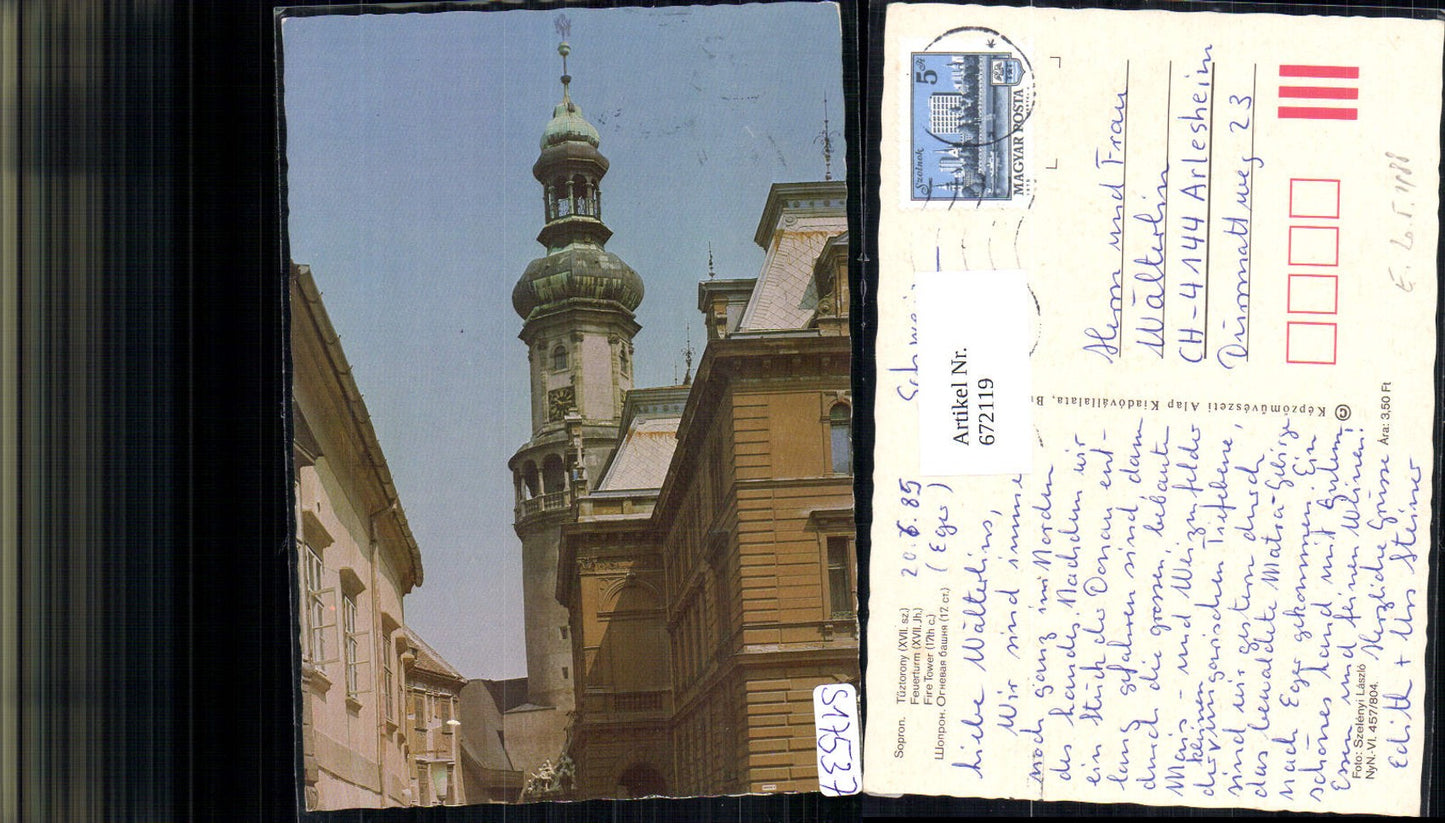 517537
Sopron. Tűztorony (XVII. sz.)
Feuerturm (XVII. Jh.)
Fire Tower (17th c.)
Шопрон. Огневая башня (17. ст.)
20.6.85
(Eger)
Liebe Wälterlins,
Wir sind immer
noch ganz im Norden
des Landes. Nachdem wir
ein Stück der Donau ent-
lang gefahren sind, dann
durch die grossen bebauten
Mais- und Weizenfelder
der kleinen ungarischen Tiefebene,
sind wir gestern durch
das bewaldete Matra-Gebirge
nach Eger gekommen. Ein
schönes Land mit gutem
Essen und feinen Weinen!
Herzliche Grüsse
Edith + Urs Steiner
Foto: Szelényi László
NyN.-VI. 457/804.
© Képzőművészeti Alap Kiadóvállalata,
Ára: 3,50 Ft
Artikel Nr.
672119
5 Ft
Szolnok
MAGYAR POSTA
Herrn und Frau
Wälterlin
CH-4144 Arlesheim
23